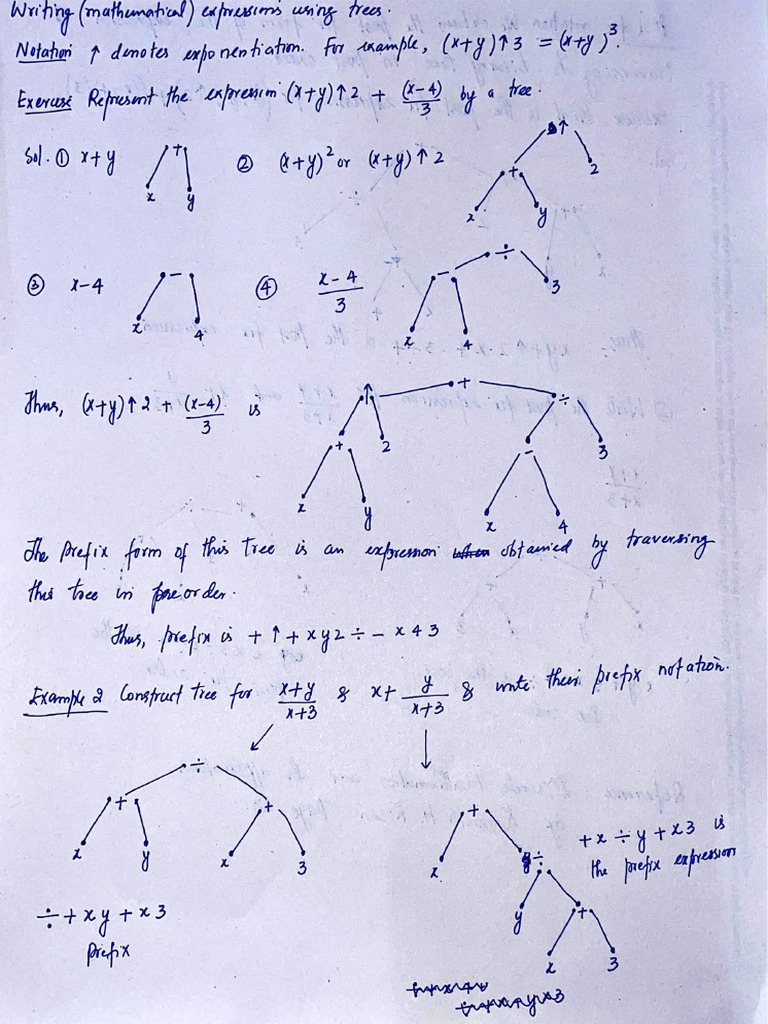 Writing (mathematical) expressions using trees.
Notation ↑ denotes exponentiation. For example, (x+y)↑3 = (x+y)³.
Exercise Represent the expression (x+y)↑2 + (x-4)/3 by a tree.
Sol. ① x+y
+
x y
② (x+y)² or (x+y)↑2
↑
+ 2
x y
③ x-4
-
x 4
④ x-4/3
÷
- 3
x 4
Thus, (x+y)↑2 + (x-4)/3 is
+
↑ ÷
+ 2 - 3
x y x 4
The prefix form of this Tree is an expression obtained by traversing
this tree in preorder.
Thus, prefix is + ↑ + x y 2 ÷ - x 4 3
Example 2 Construct tree for x+y/x+3 & x+ y/x+3 & write their prefix notation.
÷
+ +
x y x 3
÷ + x y + x 3
prefix
+
x ÷
y +
x 3
+ x ÷ y + x 3 is
the prefix expression